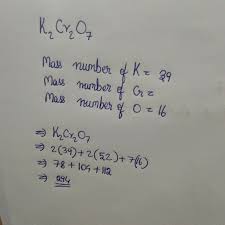 K₂Cr₂O₇
Mass number of K = 39
Mass number of Cr =
Mass number of O = 16
⇒ K₂Cr₂O₇
⇒ 2(39) + 2(52) + 7(16)
⇒ 78 + 104 + 112
⇒ 294